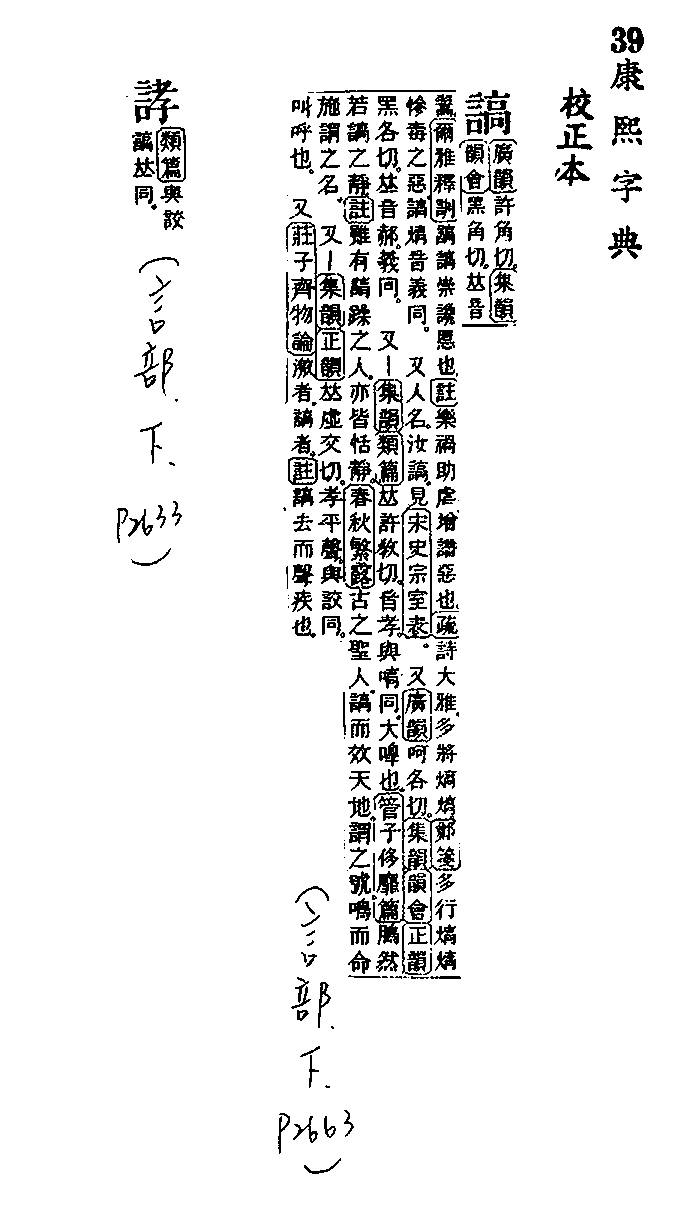 39康熙字典
校正本
謞
廣韻許角切集韻
韻會黑角切𠀤音
爾雅釋訓謞謞崇讒慝也註樂禍助虐增譖惡也疏詩大雅多將熇熇鄭箋多行熇熇
慘毒之惡謞熇音義同 又人名汝謞見宋史宗室表。又廣韻呵各切集韻韻會正韻
黑各切𠀤音郝義同 又丨集韻類篇𠀤許敎切音孝與嗃同大嘷也管子侈靡篇鴞然
若謞之靜註雖有蹻躁之人亦皆恬靜春秋繁露古之聖人謞而效天地謂之號鳴而命
施謂之名 又丨集韻正韻𠀤虛交切孝平聲與詨同
叫呼也。又莊子齊物論激者謞者註謞去而聲疾也
(言部.下.P2663)
誟
類篇與詨
謞𠀤同
(言部.下.P2633)